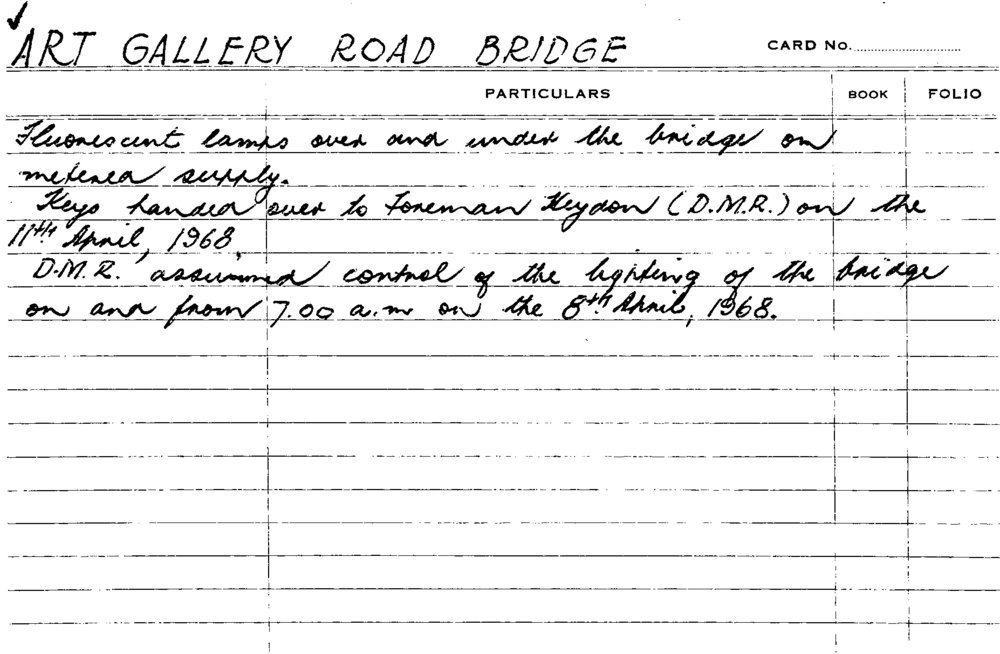 ART GALLERY ROAD BRIDGE CARD No.
PARTICULARS BOOK FOLIO
Fluorescent lamps over and under the bridge on
metered supply.
Keys handed over to Foreman Heydon (D.M.R.) on the
11th April, 1968.
D.M.R. assumed control of the lighting of the bridge
on and from 7.00 a.m on the 8th April, 1968.